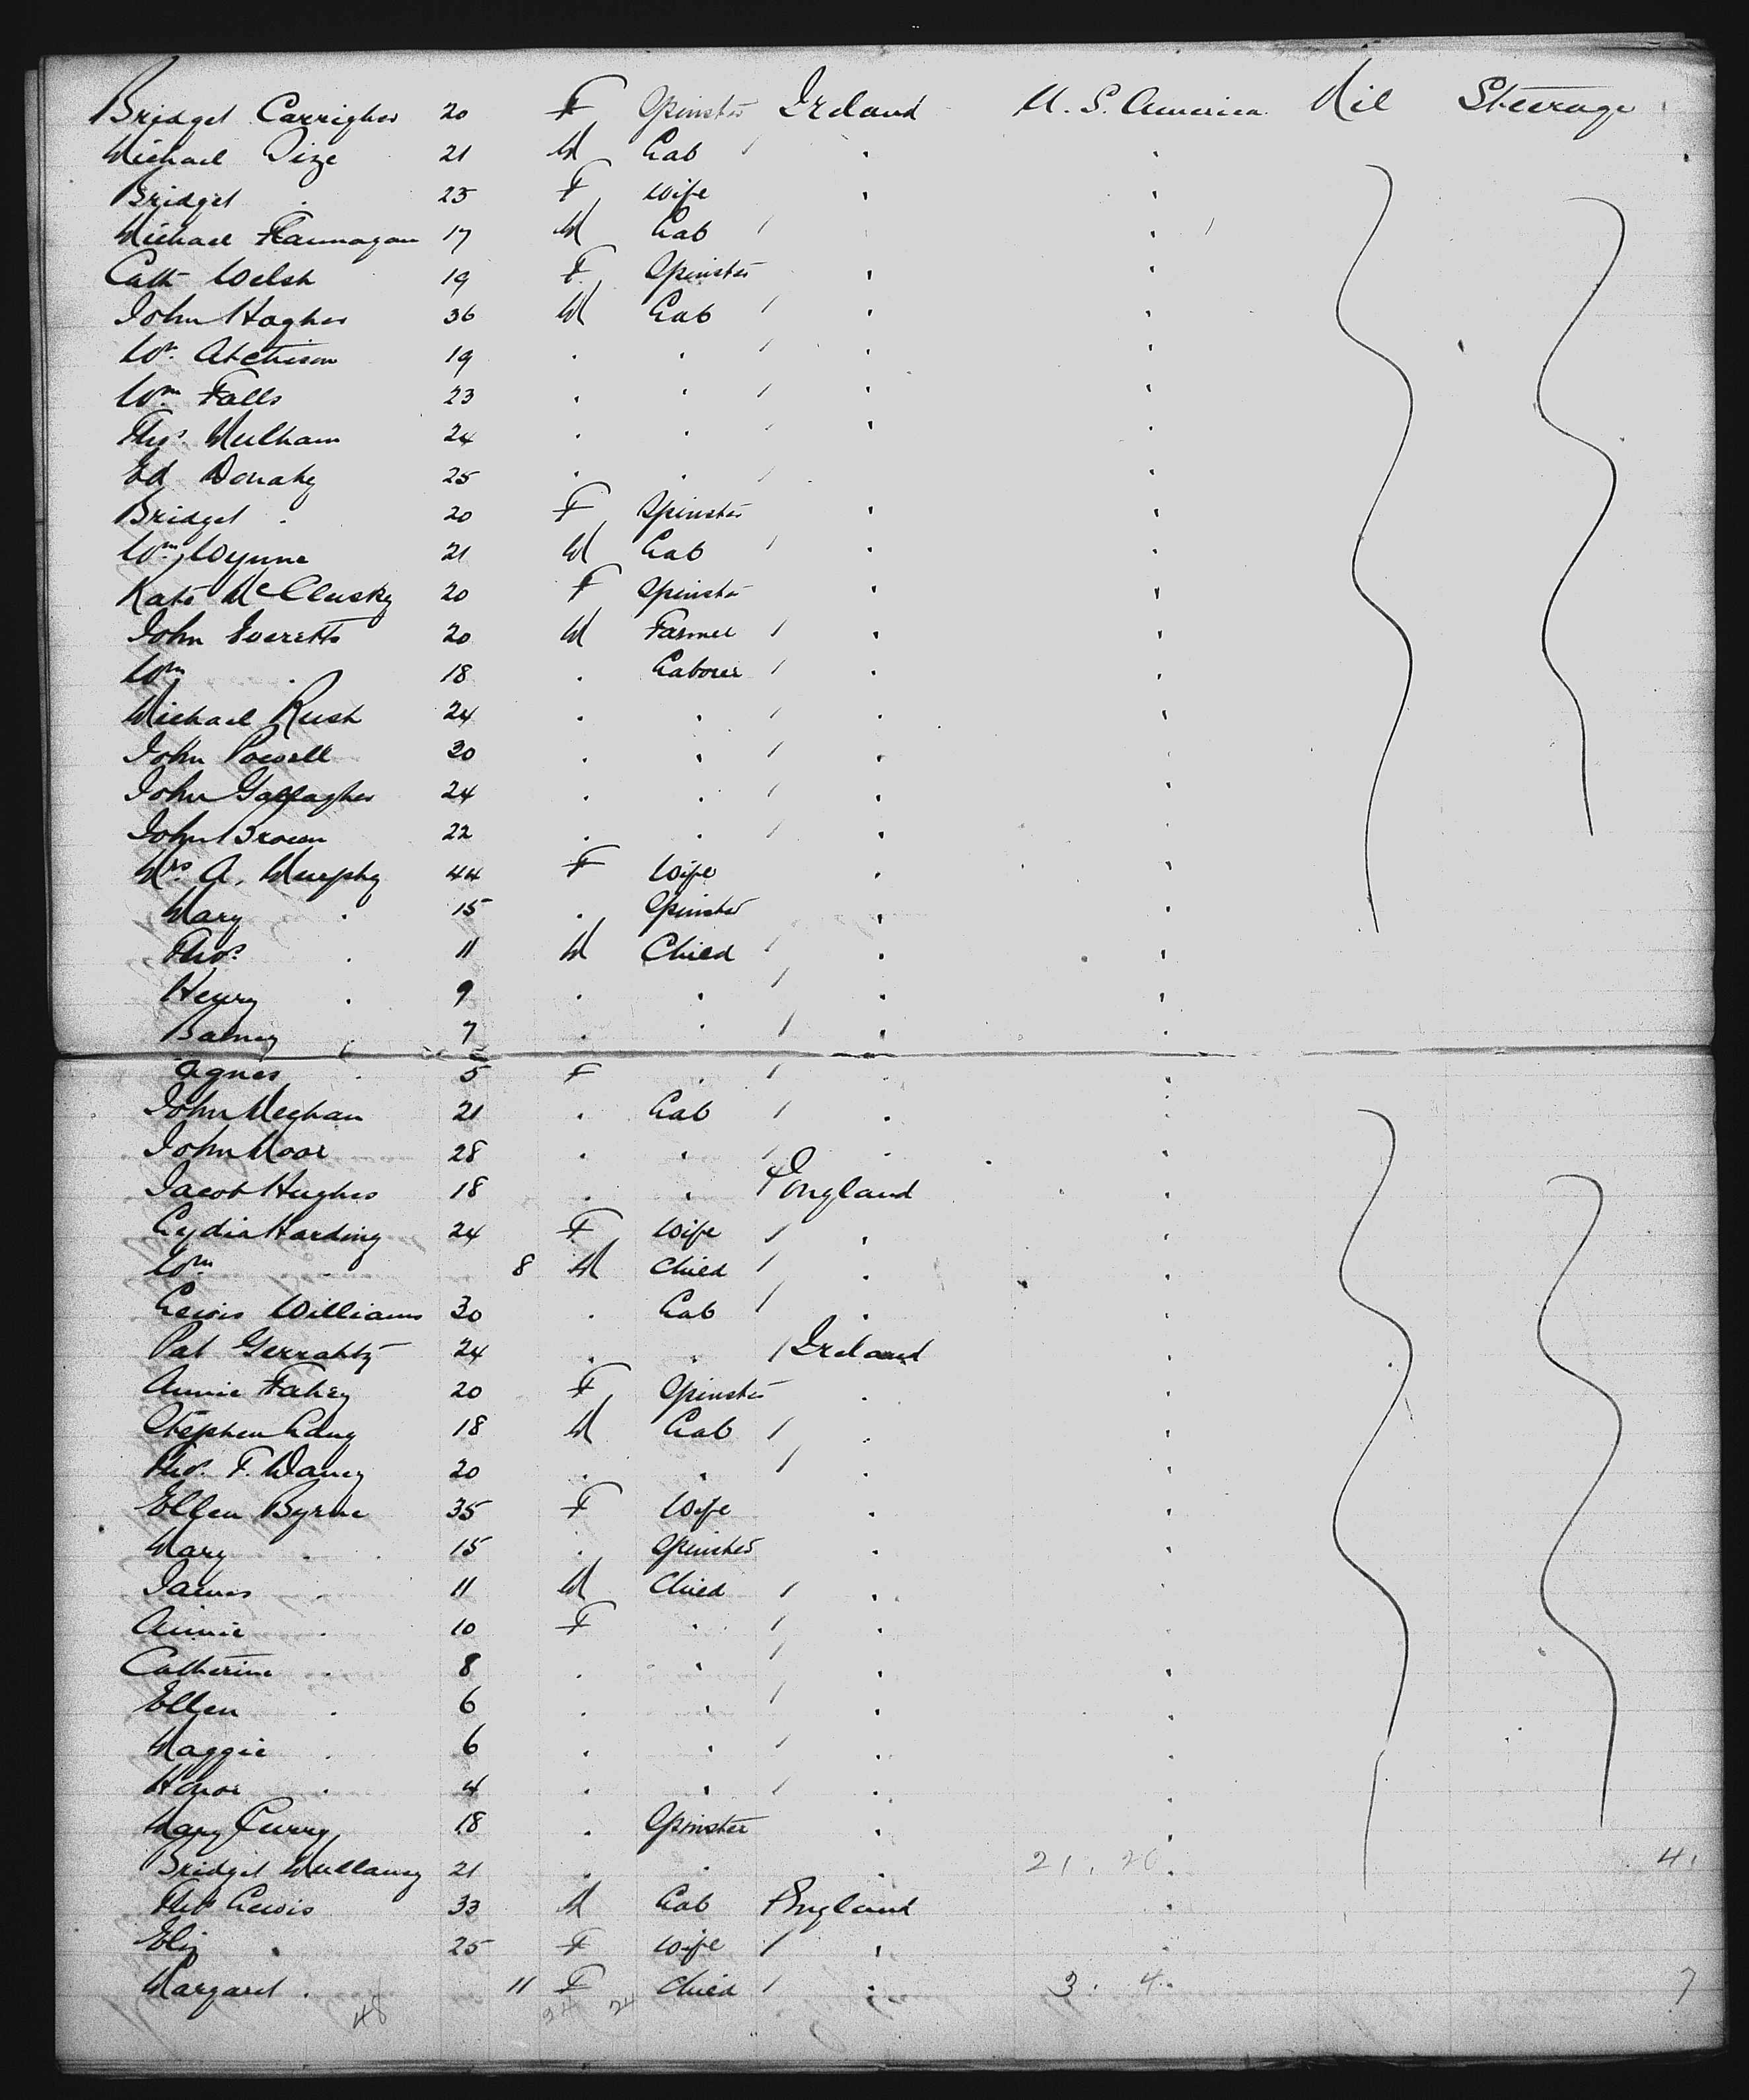 Bridget Carrigher 20 F Spinster Ireland U. S. America Nil Steerage
Michael Dize 21 M Lab
Bridget . 25 F Wife
Michael Flannagan 17 M Lab
Cath Welsh 19 F Spinster
John Hagher 36 M Lab
Wm. Atchison 19
Wm Falls 23
Thos. Mulham 24
Ed Donahy 25
Bridget . 20 F Spinster
Wm Wynne 21 M Lab
Kate McClusky 20 F Spinster
John Everetts 20 M Farmer
Wm . 18 . Laborer
Michael Rush 24
John Powell 30
John Gallagher 24
John Brown 22
Mrs. A. Murphy 44 F Wife
Mary . 15 . Spinster
Thos. . 11 M Child
Henry . 9
Barney . 7
Agnes . 5 F
John Meghan 21 . Lab
John Moor 28
Jacob Hughes 18 . . England
Lydia Harding 24 F Wife
Wm . 8 M Child
Lewis Williams 30 . Lab
Pat Gerrahty 24 . . Ireland
Annie Fahey 20 F Spinster
Stephen Lang 18 M Lab
Thos. F. 20
Ellen Byrne 35 F Wife
Mary . 15 . Spinster
James . 11 M Child
Annie . 10 F
Catherine . 8
Ellen . 6
Maggie . 6
Honor . 4
Mary Curry 18 . Spinster
Bridget Mullaney 21 . . . 21. 20. 4.
Thos Lewis 33 M Lab England
Eliz . 25 F Wife
Margaret . 11 F Child 3. 4. 7
48 24 24